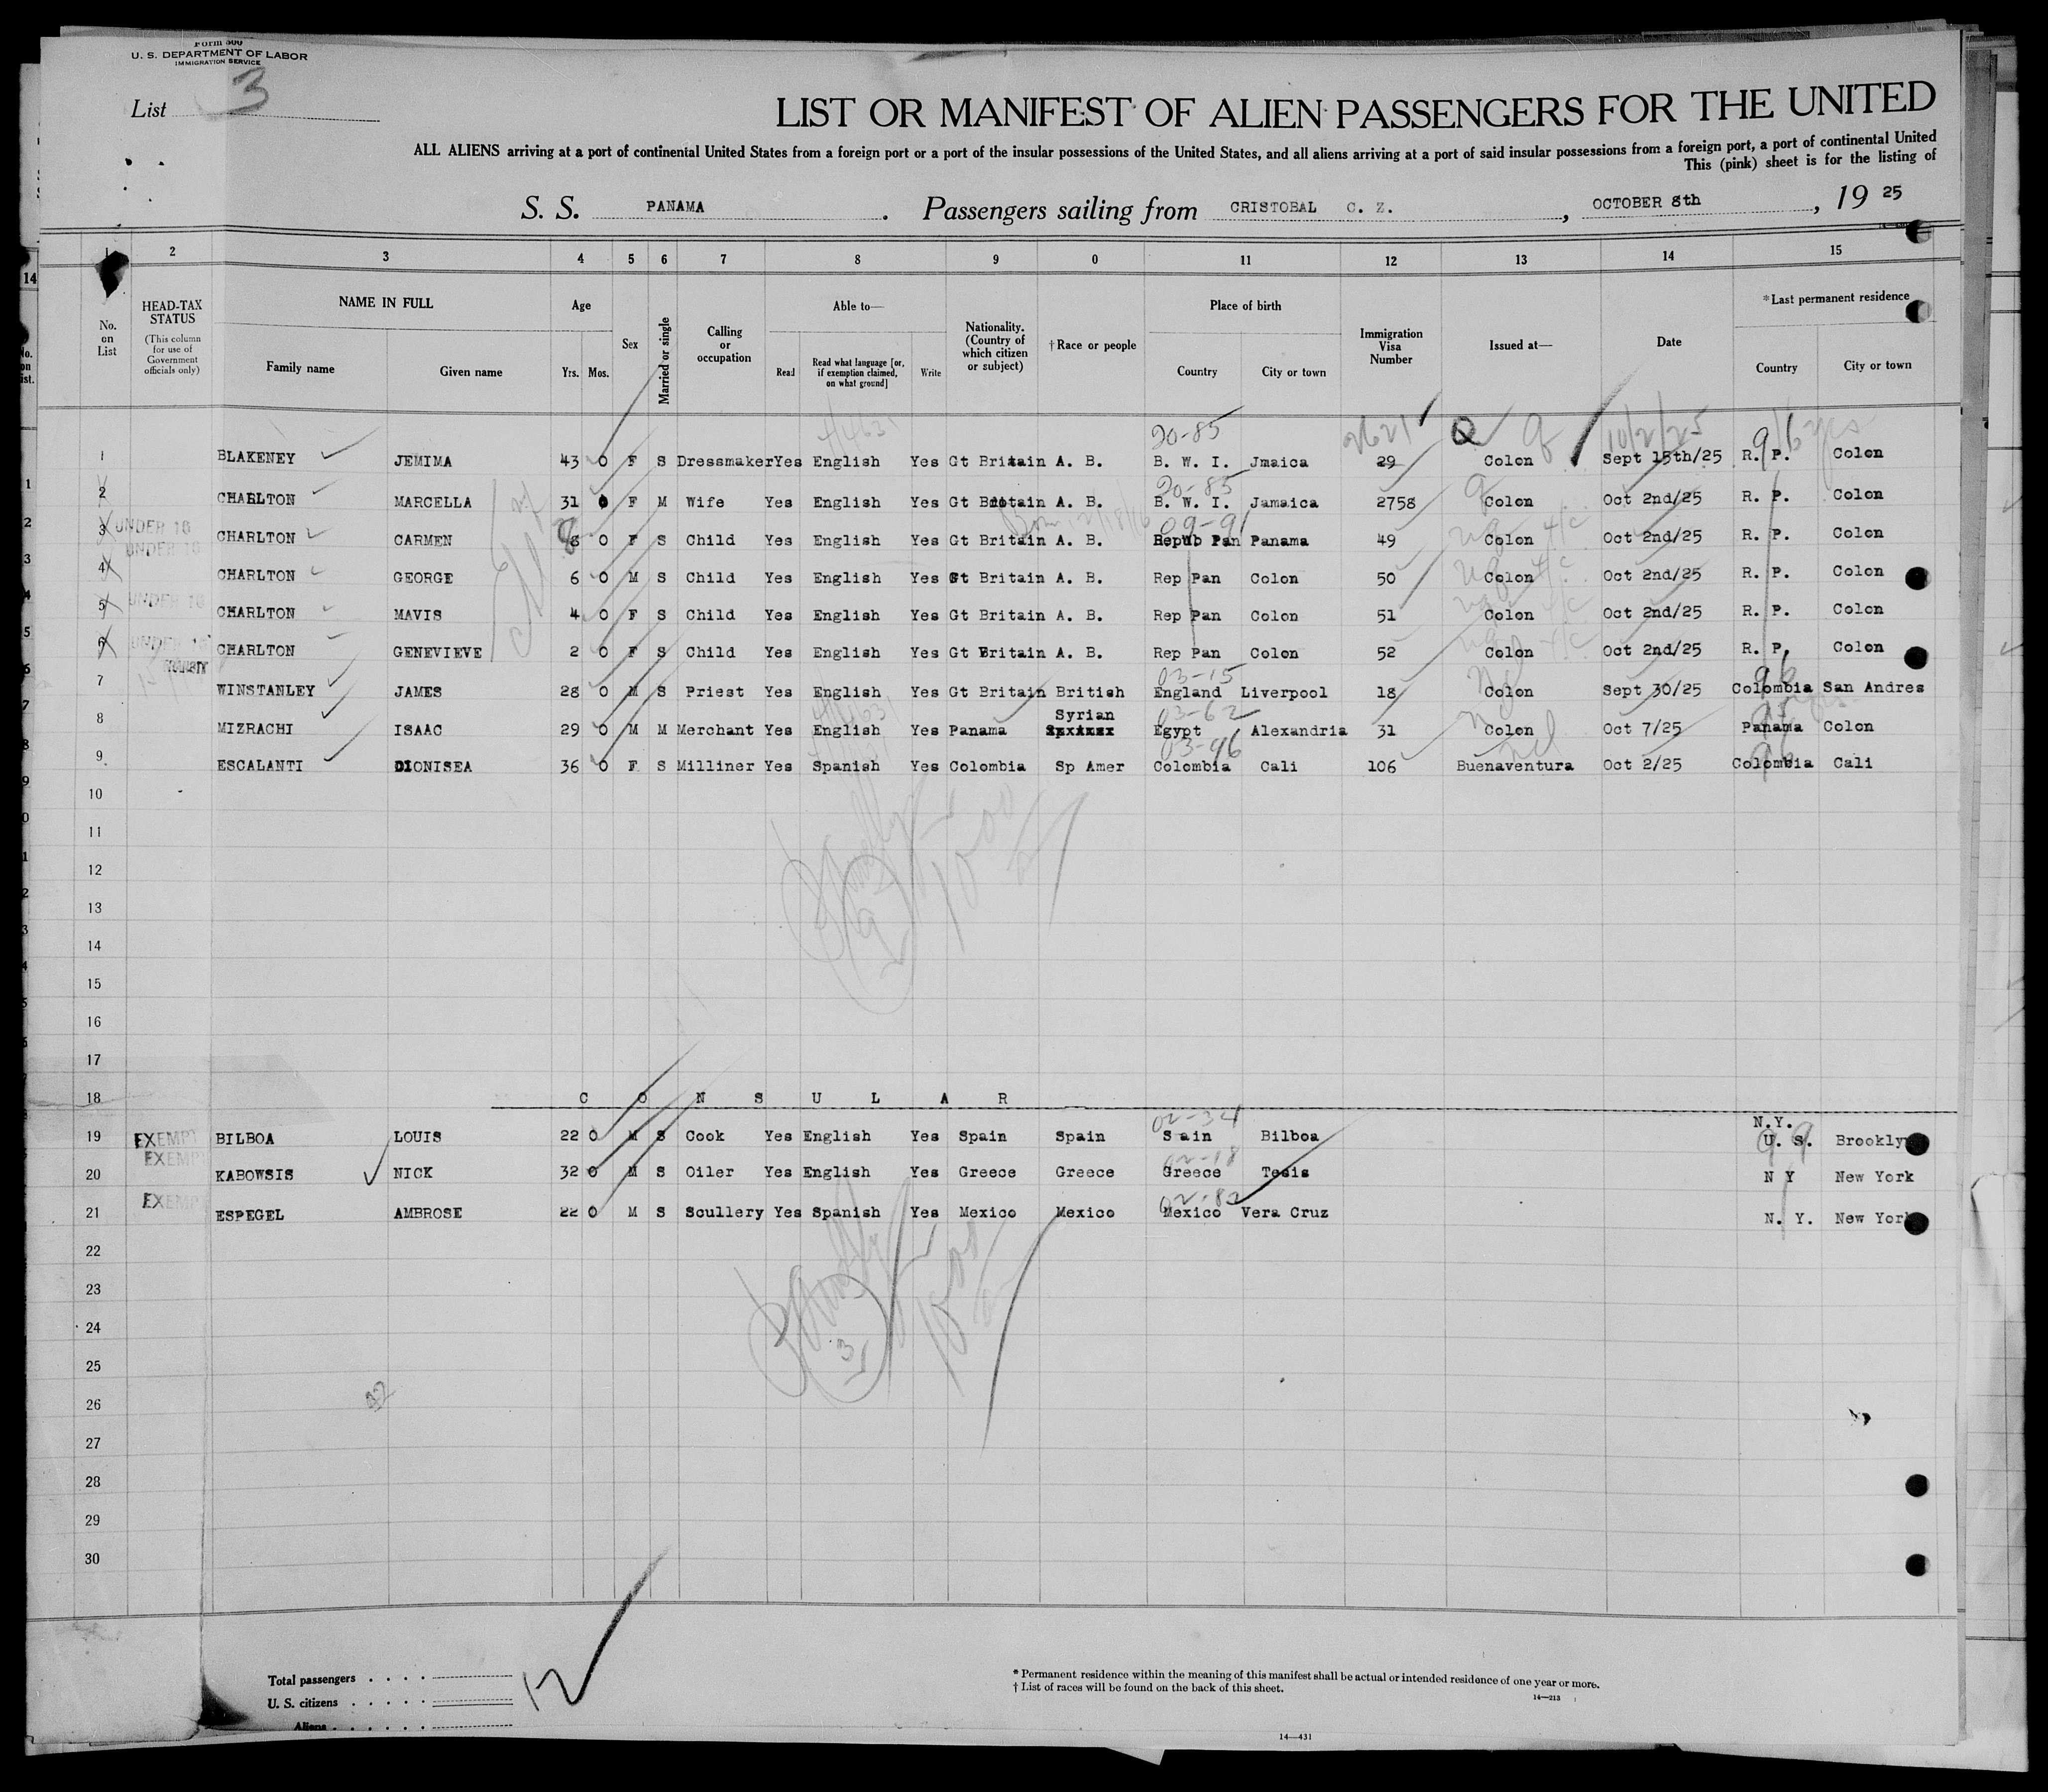 Form 500
U. S. DEPARTMENT OF LABOR
IMMIGRATION SERVICE
List 3
LIST OR MANIFEST OF ALIEN PASSENGERS FOR THE UNITED
ALL ALIENS arriving at a port of continental United States from a foreign port or a port of the insular possessions of the United States, and all aliens arriving at a port of said insular possessions from a foreign port, a port of continental United
This (pink) sheet is for the listing of
S. S. PANAMA . Passengers sailing from CRISTOBAL C. Z. , OCTOBER 8th , 19 25
1 2 3 4 5 6 7 8 9 0 11 12 13 14 15
No. on List
HEAD-TAX STATUS
(This column for use of Government officials only)
NAME IN FULL
Family name Given name
Age
Yrs. Mos.
Sex
Married or single
Calling or occupation
Able to—
Read Read what language [or, if exemption claimed, on what ground] Write
Nationality. (Country of which citizen or subject)
†Race or people
Place of birth
Country City or town
Immigration Visa Number
Issued at—
Date
*Last permanent residence
Country City or town
20-85 2621 10/2/25
1 BLAKENEY JEMIMA 43 0 F S Dressmaker Yes English Yes Gt Britain A. B. B. W. I. Jmaica 29 Colon Sept 15th/25 R. P. Colon
20-85
2 CHARLTON MARCELLA 31 0 F M Wife Yes English Yes Gt Britain A. B. B. W. I. Jamaica 2758 Colon Oct 2nd/25 R. P. Colon
UNDER 16 09-91
3 CHARLTON CARMEN 8 0 F S Child Yes English Yes Gt Britain A. B. Repub Pan Panama 49 Colon Oct 2nd/25 R. P. Colon
UNDER 16
4 CHARLTON GEORGE 6 0 M S Child Yes English Yes Gt Britain A. B. Rep Pan Colon 50 Colon Oct 2nd/25 R. P. Colon
UNDER 16
5 CHARLTON MAVIS 4 0 F S Child Yes English Yes Gt Britain A. B. Rep Pan Colon 51 Colon Oct 2nd/25 R. P. Colon
UNDER 16
6 CHARLTON GENEVIEVE 2 0 F S Child Yes English Yes Gt Britain A. B. Rep Pan Colon 52 Colon Oct 2nd/25 R. P. Colon
TRANSIT 03-15
7 WINSTANLEY JAMES 28 0 M S Priest Yes English Yes Gt Britain British England Liverpool 18 Colon Sept 30/25 Colombia San Andres
Syrian 03-62
8 MIZRACHI ISAAC 29 0 M M Merchant Yes English Yes Panama Egypt Alexandria 31 Colon Oct 7/25 Panama Colon
03-96
9 ESCALANTI DIONISEA 36 0 F S Milliner Yes Spanish Yes Colombia Sp Amer Colombia Cali 106 Buenaventura Oct 2/25 Colombia Cali
10
11
12
13
14
15
16
17
18 C O N S U L A R
02-34 N.Y.
19 EXEMPT BILBOA LOUIS 22 0 M S Cook Yes English Yes Spain Spain S ain Bilboa U. S. Brooklyn
EXEMPT 02-18
20 KABOWSIS NICK 32 0 M S Oiler Yes English Yes Greece Greece Greece Tesis N Y New York
EXEMPT 02-82
21 ESPEGEL AMBROSE 22 0 M S Scullery Yes Spanish Yes Mexico Mexico Mexico Vera Cruz N. Y. New York
22
23
24
25
26
27
28
29
30
Total passengers
U. S. citizens
Aliens
12
* Permanent residence within the meaning of this manifest shall be actual or intended residence of one year or more.
† List of races will be found on the back of this sheet.
14—213
14—431